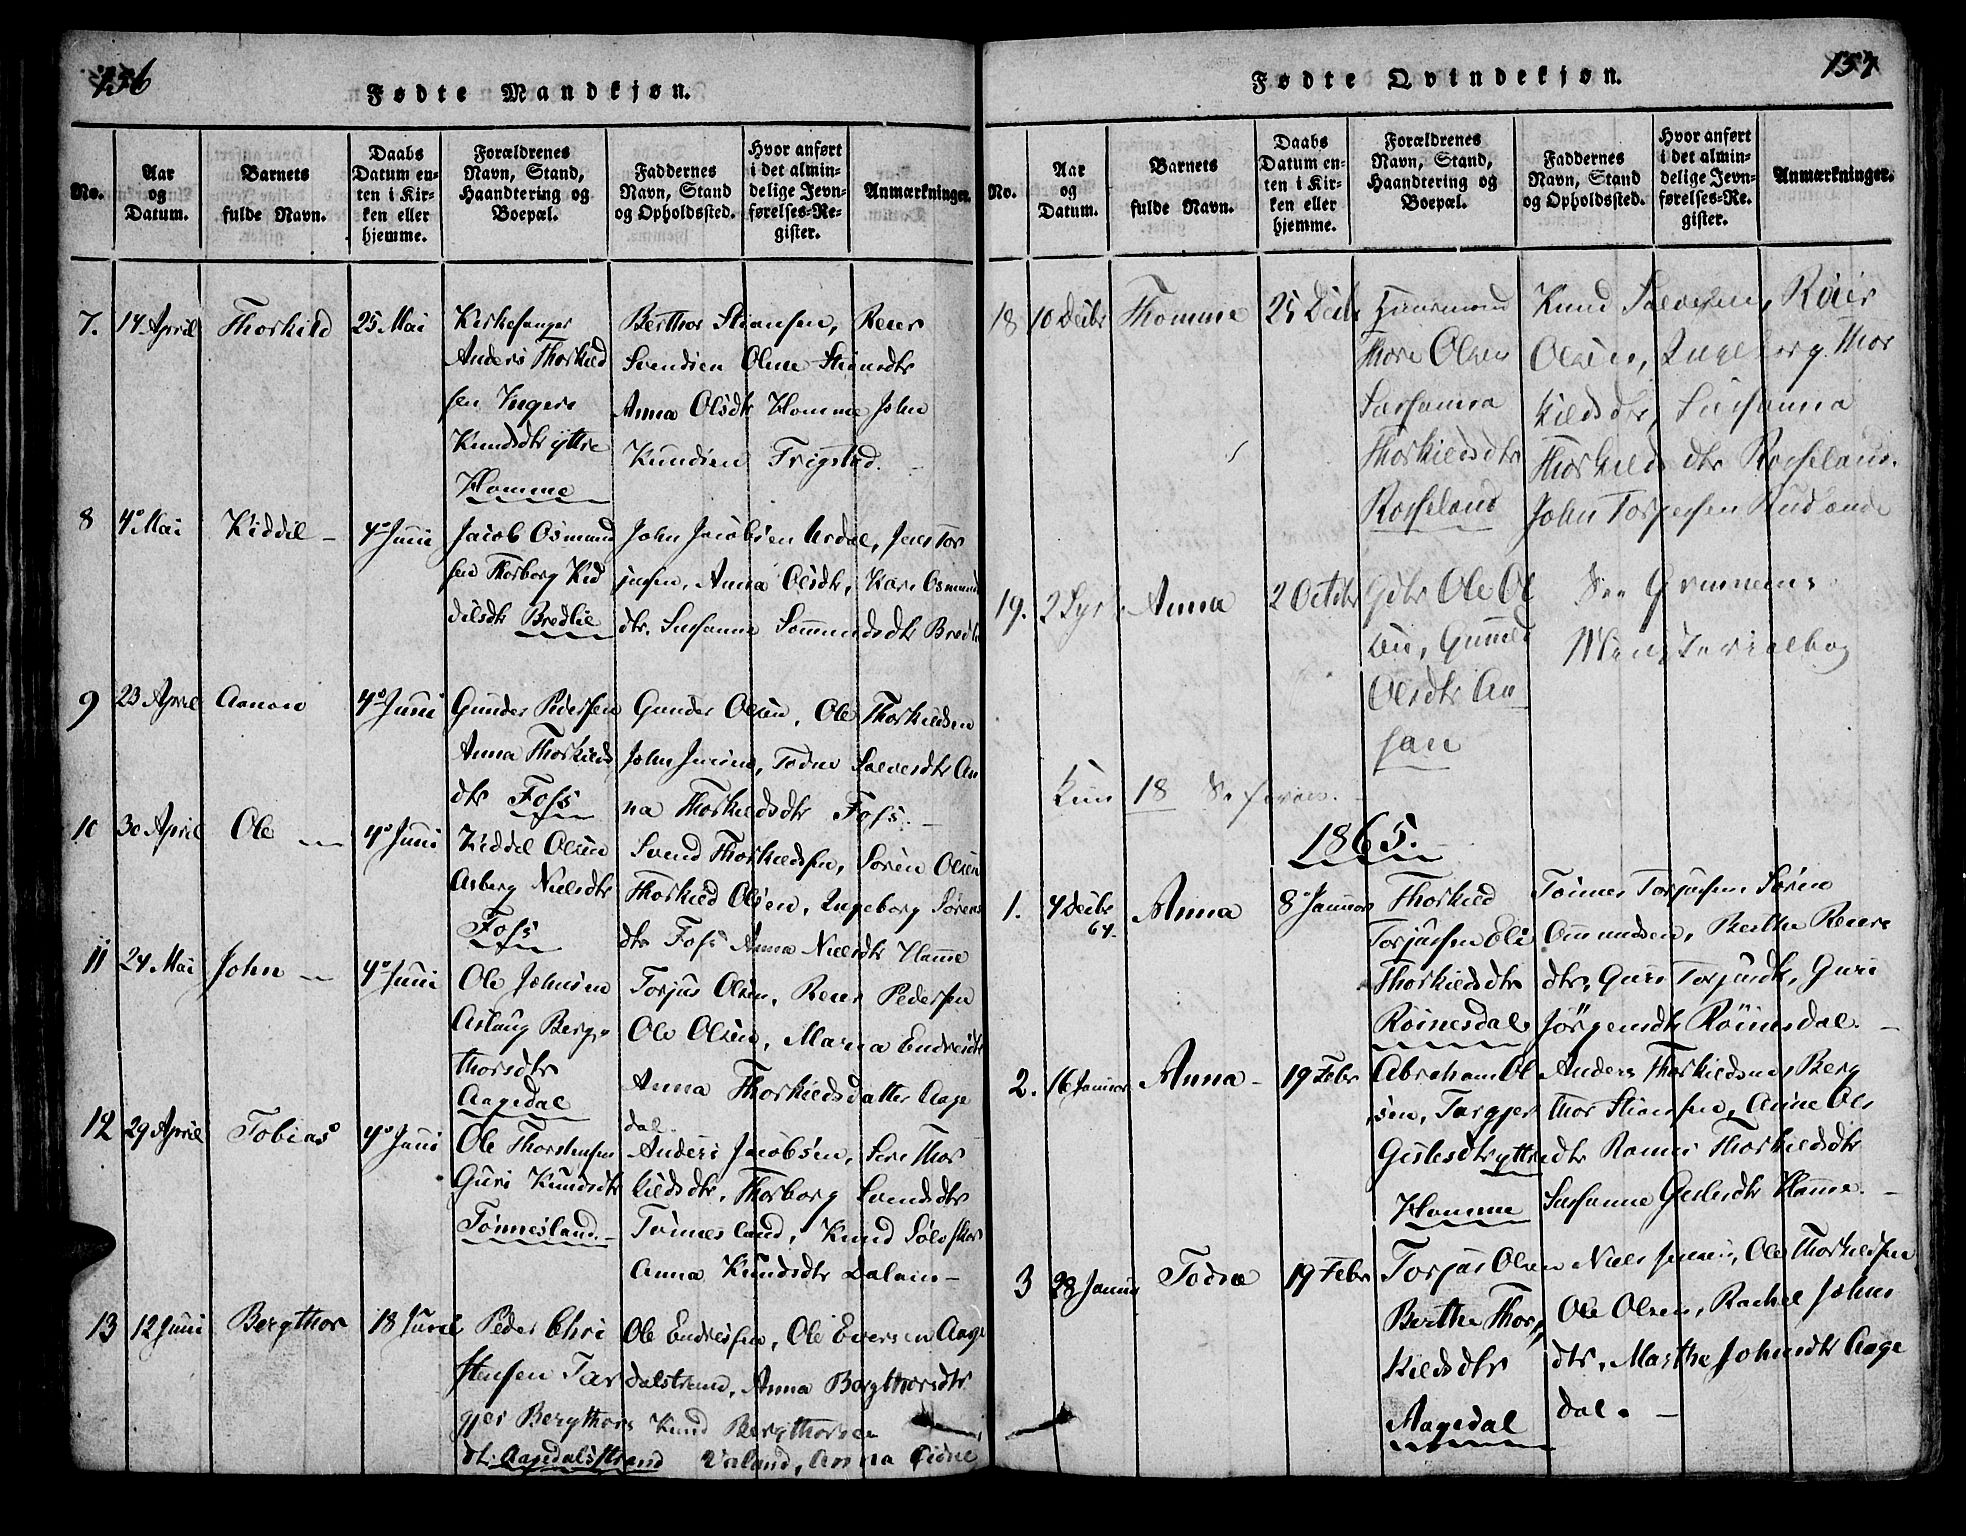 156
Fødte Mandkjøn.
No.
Aar
og
Datum.
Barnets
fulde Navn.
Daabs
Datum en-
ten i Kir-
ken eller
hjemme.
Forældrenes
Navn, Stand,
Haandtering og
Boepæl.
Faddernes
Navn, Stand
og Opholdssted.
Hvor anført
i det almin-
delige Jevn-
førelses-Re-
gister.
Anmærkninger.
7. 14 April Thorkild 25 Mai
Kirkesanger
Anders Thorkild
sen Ingere
Knudsdtr yttre
Homme
Berthor Stiansen, Reier
Svendsen Olene Stiansdtr
Anna Olsdtr Homme John
Knudsen Frigstad.
8 4º Mai Kiddil 4º Juni
Jacob Osmund
sen Thorborg Kid
dilsdtr Bredlie
John Jacobsen Urdal, Jens Tor
jusen, Anna Olsdtr, Kari Osmund
dtr. Susanne Sommundsdtr Bredli
9 23 April Aanon 4º Juni
Gunder Pedersen
Anna Thorkilds
dtr Foss
Gunder Olsen, Ole Thorkildsen
John Jensen, Todne Salvesdtr An
na Thorkildsdtr Foss.
10 30 April Ole 4º Juni
Kiddel Olsen
Asberg Nielsdtr
Foss
Svend Thorkildsen, Søren Olsen
Thorkild Olsen, Ingeborg Sørens
dtr Foss Anna Nielsdtr Homme
11 24 Mai John 4º Juni
Ole Johnsen
Aslaug Berg
thorsdtr
Aagedal
Torjus Olsen, Reier Pedersen
Ole Olsen, Maria Endresdtr
Anna Thorkildsdatter Aage
dal.
12 29 April Tobias 4º Juni
Ole Thorstensen
Guri Knudsdtr
Tønnesland.
Anders Jacobsen, Siri Thor
kildsdtr, Thorborg Svendsdtr
Tønnesland, Knud
Anna Knudsdtr Dalen
13 12 Juni Bergthor 18 Juni
Peder Chri
stensen Tar
gjer Bergthors
dt. Aagedalsstrand
Ole Endresen, Ole Eversen Aage
dalstrand, Anna Bergthorsdtr
Knud Bergthorsen
Urland, Anna
157
Fødte Qvindekjøn.
No.
Aar
og
Datum.
Barnets
fulde Navn.
Daabs
Datum en-
ten i Kir-
ken eller
hjemme.
Forældrenes
Navn, Stand,
Haandtering og
Boepæl.
Faddernes
Navn, Stand
og Opholdssted.
Hvor anført
i det almin-
delige Jevn-
førelses-Re-
gister.
Anmærkninger.
18 10 Decbr Thomine 25 Decbr
Huusmand
Thore Olsen
Susanna
Thorkildsdtr
Rosseland
Knud Salvesen, Reier
Olsen, Ingeborg Thor
kildsdtr, Susanna
Thorkildsdtr Rosseland.
John Torjusen
19. 2 Anna 2 Octbr
Gdbr Ole Ol
sen, Gunild
Olsdtr
Kun 18 Se foran.
1865.
1. 4 Decbr
64.
Anna 8 Januar
Thorkild
Torjussen Eli
Thorkildsdtr
Røinesdal
Tønnes Torjussen Søren
Ommundsen, Berthe Reiers
dtr, Guri Torjusdtr, Guri
Jørgensdtr Røinesdal.
2. 16 Januar Anna 19 Febr
Abraham Ol
sen, Targjer
Gislesdtr yttre
Homme
Anders Thorkildsen, Berg
thor Stiansen, Anne Ols
dtr Thorkildsdtr
Susanne Gislesdtr Homme.
3 28 Januar Todne 19 Febr
Torjus Olsen
Berthe Thor
kildsdtr
Aagedal
Niels Jensen, Ole Thorkildsen
Ole Olsen, Rachel Johns
dtr, Marthe Johnsdtr Aage
dal.